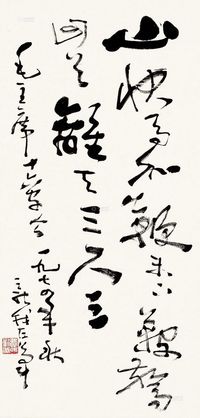 山快马加鞭未下鞍驚
回首離天三尺三
毛主席十六字令 一九七四年秋